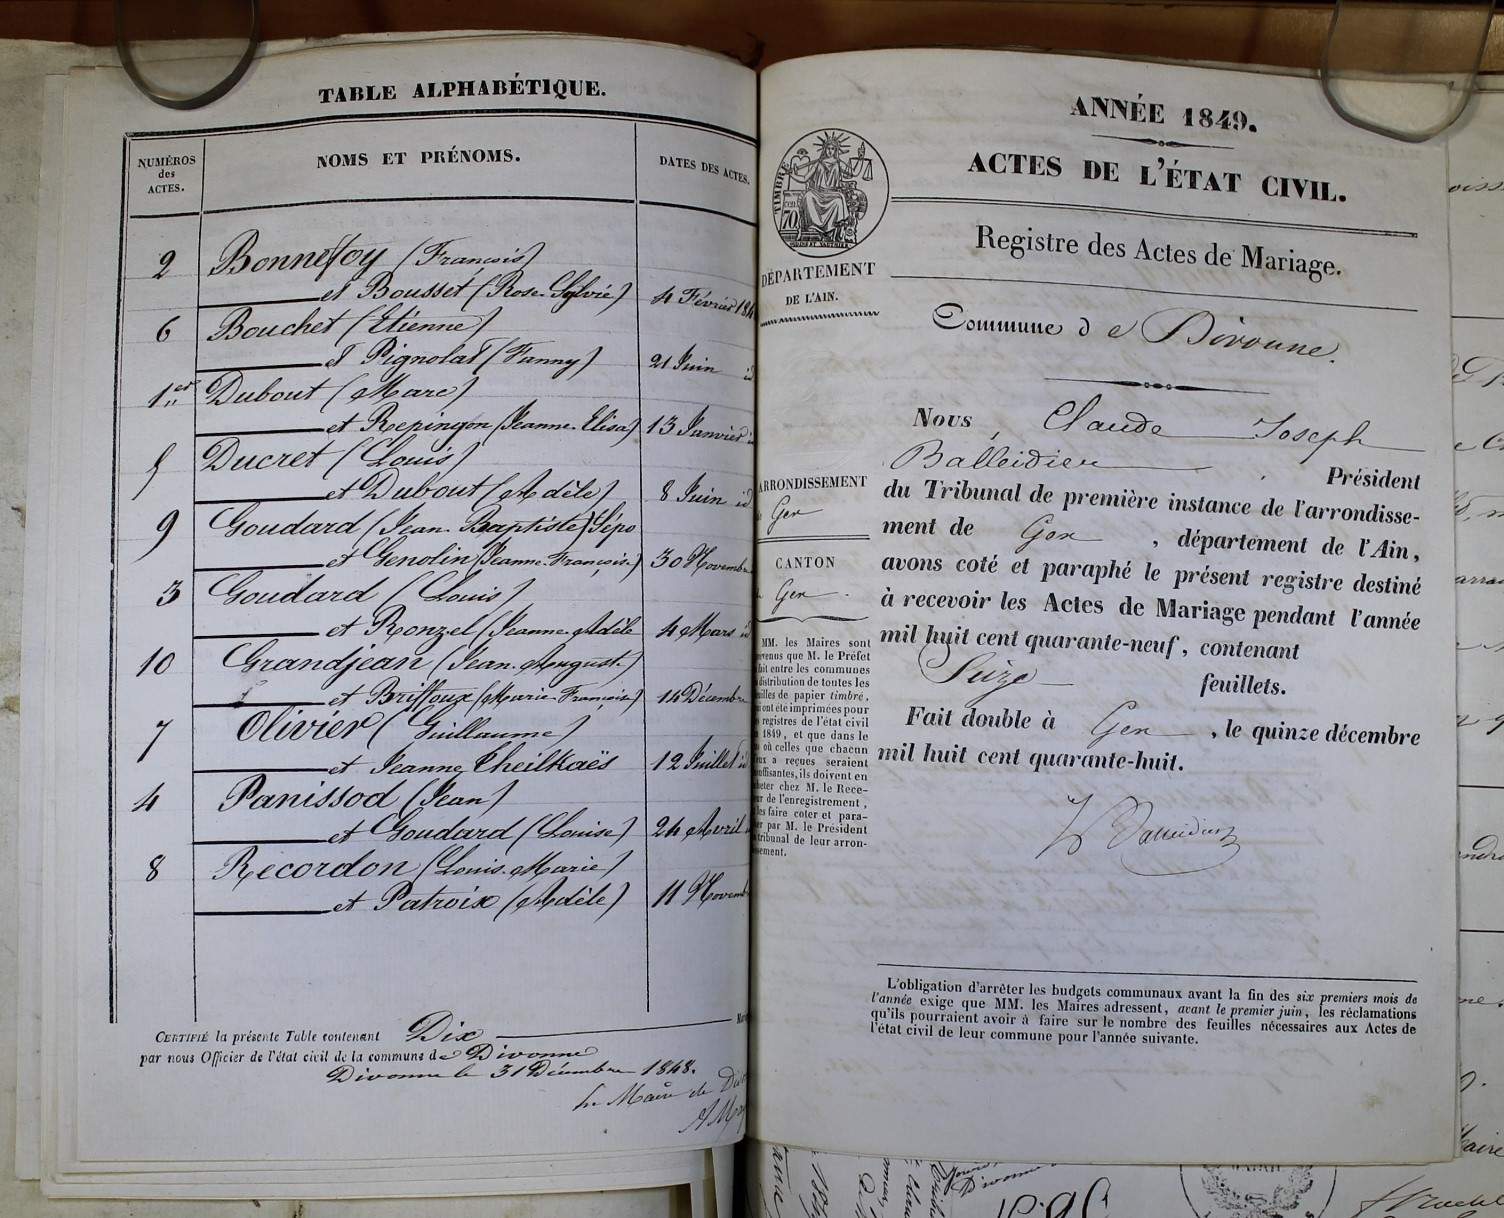 TABLE ALPHABÉTIQUE.
NUMÉROS
des
ACTES.
NOMS ET PRÉNOMS.
DATES DES ACTES.
2 Bonnefoy (François)
et Bousset (Rose-Sylvie) 4 Février 184
6 Bouchet (Etienne)
et Pignolat (Fanny) 21 Juin id
1er Dubout (Marc)
et Repingon (Jeanne-Elisa) 13 Janvier
5 Ducret (Louis)
et Dubout (Adèle) 8 Juin id
9 Goudard (Jean-Baptiste)
et Genolin (Jeanne-Françoise) 30 Novembre
3 Goudard (Louis)
et Ronzel (Jeanne-Adèle 4 Mars id
10 Grandjean (Jean-August.)
et Briffoux (Marie-Françoise) 14 Décembre
7 Olivier (Guillaume)
et Jeanne Theilkaës 12 Juillet id
4 Panissod (Jean)
et Goudard (Louise) 24 Avril
8 Recordon (Louis-Marie)
et Patroix (Adèle) 11 Novemb
CERTIFIÉ la présente Table contenant Dix
par nous Officier de l'état civil de la commune de Divonne
Divonne le 31 Décembre 1848.
Le Maire de
ANNÉE 1849.
ACTES DE L'ÉTAT CIVIL.
Registre des Actes de Mariage.
TIMBRE
70
DÉPARTEMENT
DE L'AIN.
Commune de Divonne.
ARRONDISSEMENT
Gex
CANTON
Gex.
MM. les Maires sont
venus que M. le Préfet
fait entre les communes
distribution de toutes les
feuilles de papier timbré,
ont été imprimées pour
registres de l'état civil
1849, et que dans le
où celles que chacun
eux a reçues seraient
suffisantes, ils doivent en
acheter chez M. le Rece-
eur de l'enregistrement,
les faire coter et para-
er par M. le Président
tribunal de leur arron-
ssement.
Nous Claude Joseph
Balleidier Président
du Tribunal de première instance de l'arrondisse-
ment de Gex, département de l'Ain,
avons coté et paraphé le présent registre destiné
à recevoir les Actes de Mariage pendant l'année
mil huit cent quarante-neuf, contenant
Seize feuillets.
Fait double à Gex, le quinze décembre
mil huit cent quarante-huit.
Balleidier
L'obligation d'arrêter les budgets communaux avant la fin des six premiers mois de
l'année exige que MM. les Maires adressent, avant le premier juin, les réclamations
qu'ils pourraient avoir à faire sur le nombre des feuilles nécessaires aux Actes de
l'état civil de leur commune pour l'année suivante.